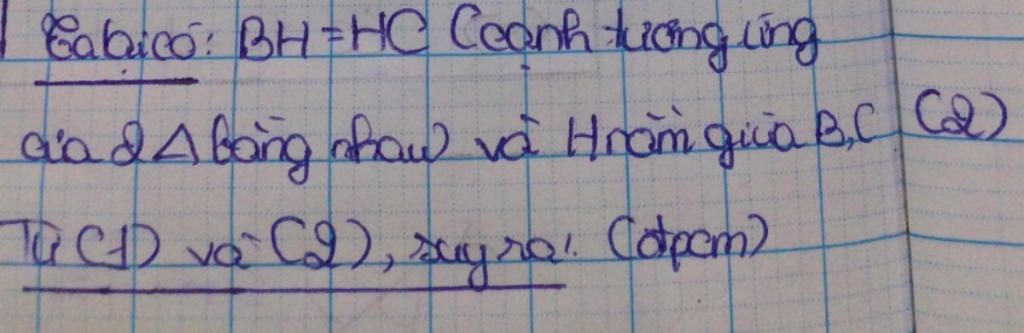 Ta lại có: BH = HC (cạnh tương ứng
của 2 Δ bằng nhau) và H nằm giữa B, C (2)
Từ (1) và (2), suy ra: (đpcm)